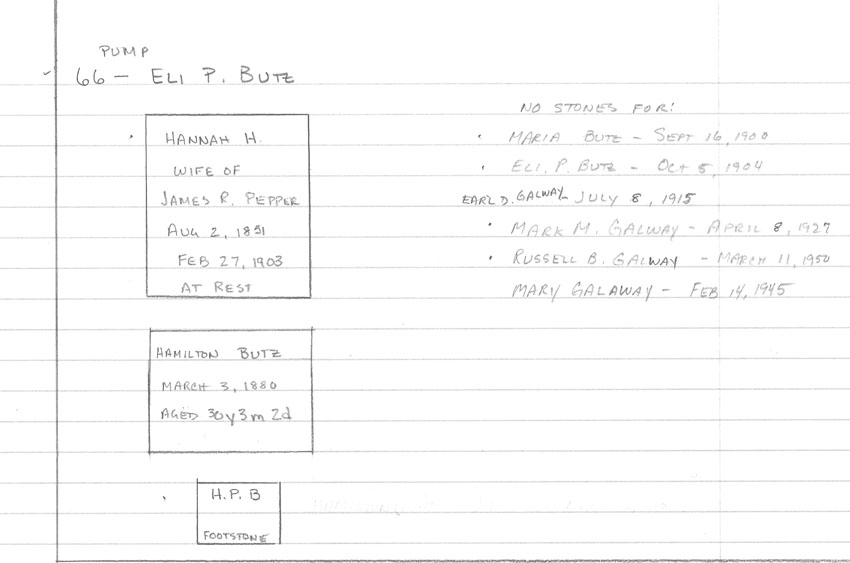 PUMP
66 - ELI P. BUTZ
HANNAH H.
WIFE OF
JAMES R. PEPPER
AUG 2, 1851
FEB 27, 1903
AT REST
HAMILTON BUTZ
MARCH 3, 1880
AGED 30y 3m 2d
H.P.B
FOOTSTONE
NO STONES FOR:
MARIA BUTZ - SEPT 16, 1900
ELI. P. BUTZ - OCT 5, 1904
EARL D. GALWAY - JULY 8, 1915
MARK M. GALWAY - APRIL 8, 1927
RUSSELL B. GALWAY - MARCH 11, 1950
MARY GALAWAY - FEB 14, 1945